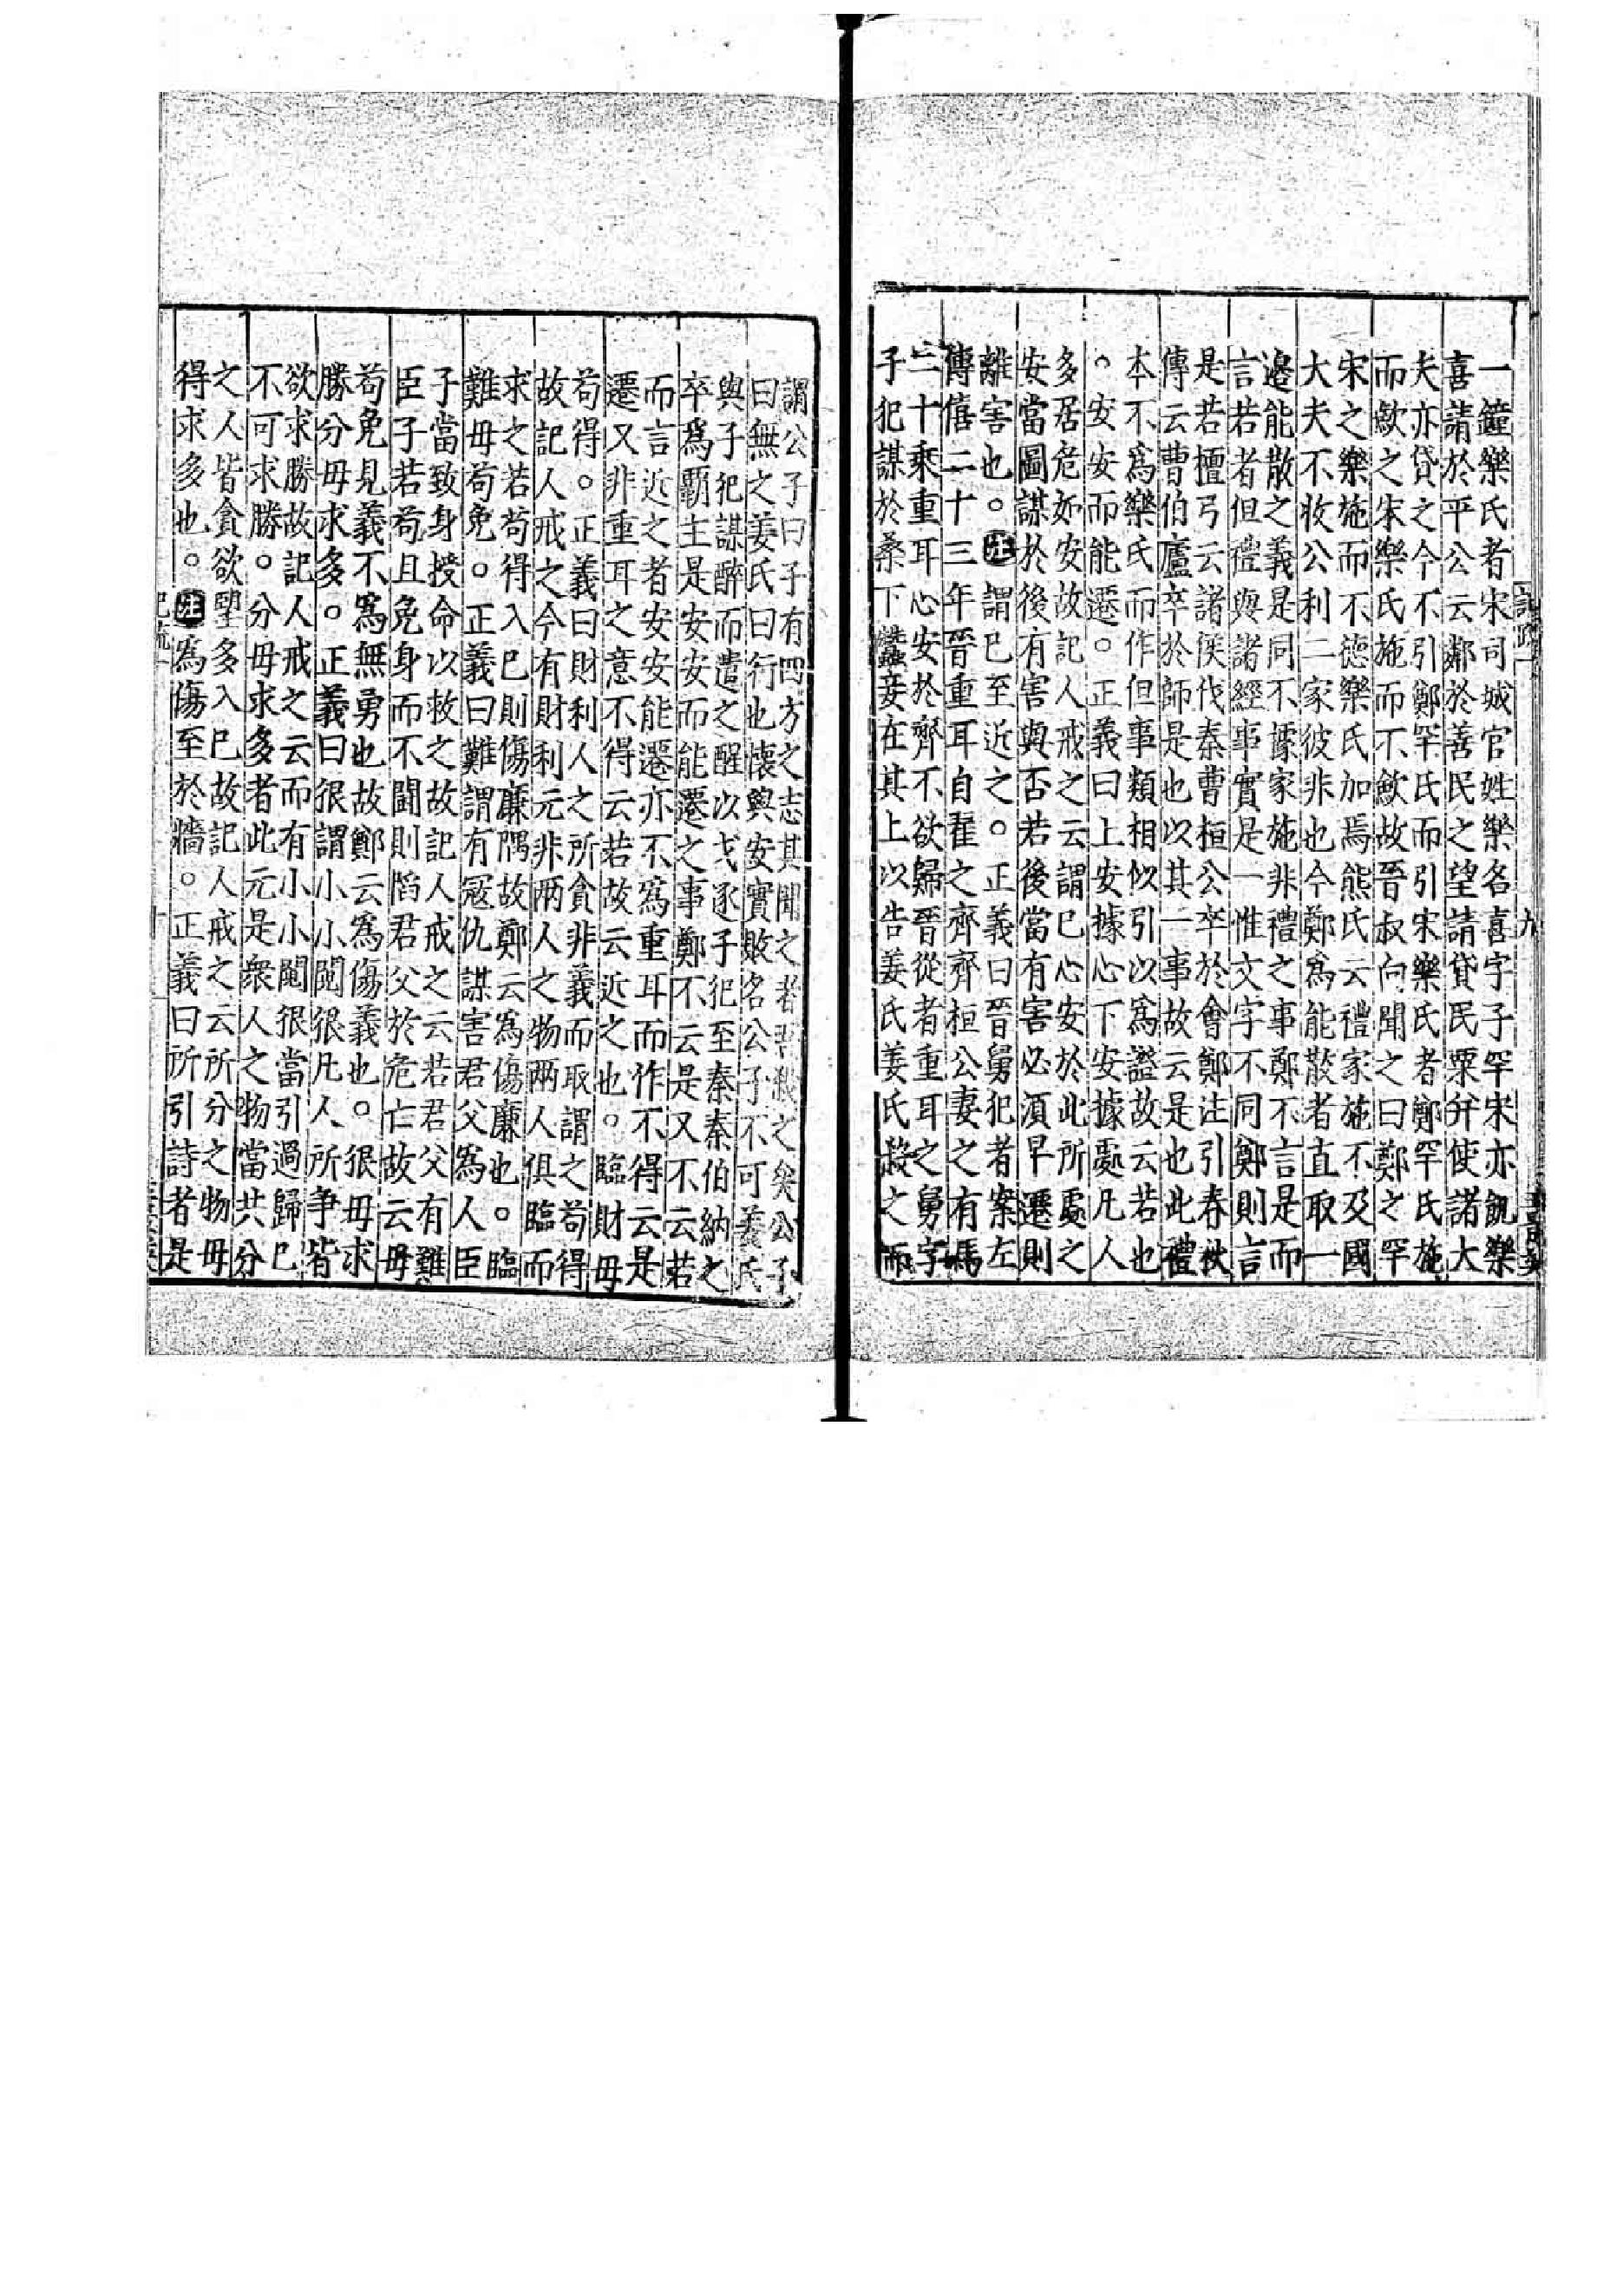 一鐘樂氏者宋司城官姓樂名喜字子罕宋亦飢樂
喜請於平公云鄰於善民之望請貸民粟并使諸大
夫亦貸之今不引鄭罕氏而引宋樂氏者鄭罕氏施
而斂之宋樂氏施而不斂故晉叔向聞之曰鄭之罕
宋之樂施而不德樂氏加焉熊氏云禮家施不及國
大夫不收公利二家彼非也今鄭為能散者直取一
邊能散之義是同不據家施非禮之事鄭不言是而
言若者但禮與諸經事實是一惟文字不同鄭則言
是若檀弓云諸侯伐秦曹桓公卒於會鄭注引春秋
傳云曹伯廬卒於師是也以其一事故云是也此禮
本不為樂氏而作但事類相似引以為證故云若也
。安安而能遷。正義曰上安據心下安據處凡人
多居危如安故記人戒之云謂已心安於此所處之
安當圖謀於後有害與否若後當有害必須早遷則
離害也。注謂已至近之。正義曰晉舅犯者案左
傳僖二十三年晉重耳自翟之齊齊桓公妻之有馬
二十乘重耳心安於齊不欲歸晉從者重耳之舅字
子犯謀於桑下蠶妾在其上以告姜氏姜氏殺之而
謂公子曰子有四方之志其聞之者吾殺之矣公子
曰無之姜氏曰行也懷與安實敗名公子不可姜氏
與子犯謀醉而遣之醒以戈逐子犯至秦秦伯納之
卒為霸主是安安而能遷之事鄭不云是又不云若
而言近之者安安能遷亦不為重耳而作不得云是
遷又非重耳之意不得云若故云近之也。臨財毋
苟得。正義曰財利人之所貪非義而取謂之苟得
故記人戒之今有財利元非兩人之物兩人俱臨而
求之若苟得入已則傷廉隅故鄭云為傷廉也。臨
難毋苟免。正義曰難謂有寇仇謀害君父為人臣
子當致身授命以救之故記人戒之云若君父有難
臣子若苟且免身而不鬬則陷君父於危亡故云毋
苟免見義不為無勇也故鄭云為傷義也。很毋求
勝分毋求多。正義曰很謂小小鬩很凡人所爭皆
欲求勝故記人戒之云而有小小鬩很當引過歸已
不可求勝。分毋求多者此元是衆人之物當共分
之人皆貪欲望多入已故記人戒之云所分之物毋
得求多也。注為傷至於牆。正義曰所引詩者是